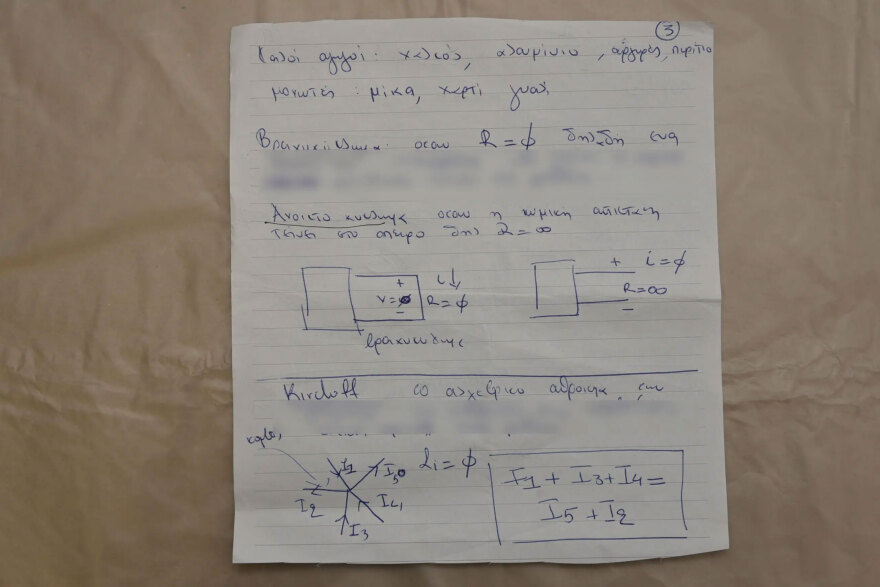 3
Καλοί αγωγοί: χαλκός, αλουμίνιο, άργυρος,
μονωτές: μίκα, χαρτί γυαλί
Βραχυκύκλωμα: οταν R=φ δηλαδή ενα
Ανοικτο κυκλωμα οταν η ωμικη αντισταση
τεινει στο απειρο δηλ R=∞
+ i + i=φ
V=φ R=φ R=∞
- -
βραχυκυκλωμα
Kirchoff το αλγεβρικο αθροισμα των
κομβος
I1 I5 Σi=φ I1 + I3+I4=
I2 I4 I5+I2
I3